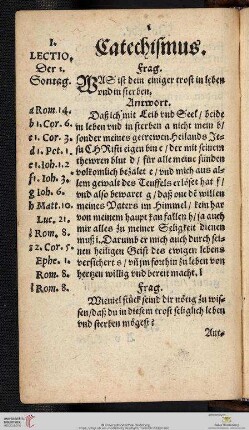 I.
LECTIO.
Der 1.
Sontag.
Catechismus.
Frag.
WAS ist dein einiger trost in leben
vnd in sterben,
Antwort.
a Rom. 14.
Daß ich mit Leib vnd Seel / beide
b 1. Cor. 6.
in leben vnd in sterben a nicht mein b /
c 1. Cor. 3.
sonder meines getrewen Heilands Je-
d 1. Pet. 1.
su CHRisti eigen bin c / der mit seinem
thewren blut d / für alle meine sünden
e 1. Joh. 1. 2
volkomlich bezalet e / vnd mich aus al-
f 1. Joh. 3,
lem gewalt des Teuffels erlöset hat f /
g Joh. 6.
vnd also bewaret g / daß one dē willen
h Matt. 10.
meines Vaters im Himmel / kein har
Luc. 21,
von meinem haupt kan fallen h / ja auch
i Rom, 8.
mir alles zu meiner Seligkeit dienen
muß i. Darumb er mich auch durch sei-
2. Cor. 5.
nen heiligen Geist des ewigen lebens
Ephe. 1.
versichert / vñ jm forthin zu leben von
Rom. 8.
hertzen willig vnd bereit macht. l
l Rom. 8.
Frag.
Wieviel stück seind dir nötig zu wis-
sen / daß du in diesem trost seliglich leben
vnd sterben mögest?
Ant-